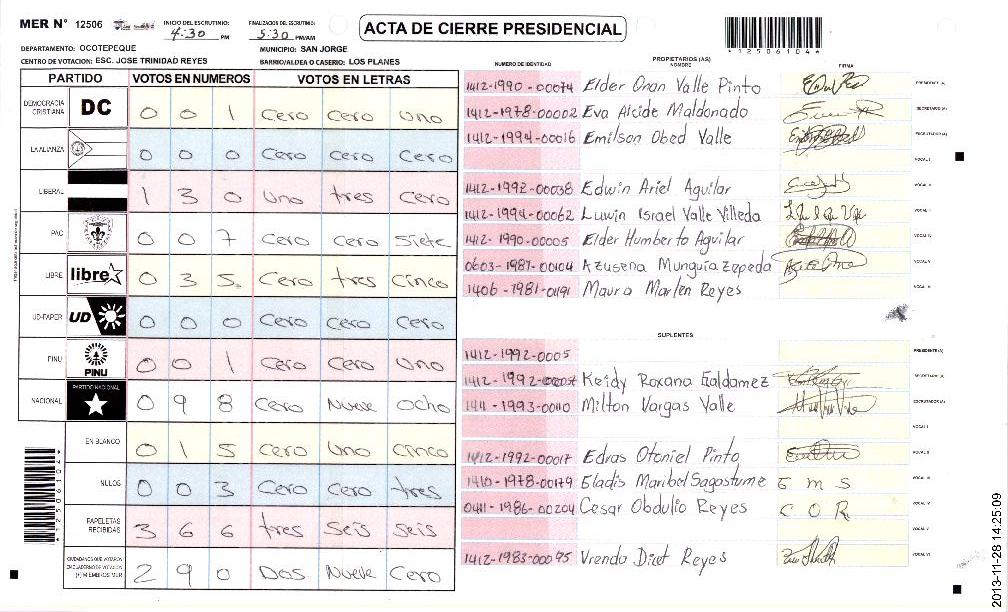 MER N° 12506
INICIO DEL ESCRUTINIO:
4:30 PM
FINALIZACION DEL ESCRUTINIO:
5:30 PM/AM
ACTA DE CIERRE PRESIDENCIAL
*12506104*
DEPARTAMENTO: OCOTEPEQUE
MUNICIPIO: SAN JORGE
CENTRO DE VOTACION: ESC. JOSE TRINIDAD REYES
BARRIO/ALDEA O CASERIO: LOS PLANES
PARTIDO VOTOS EN NUMEROS VOTOS EN LETRAS
DEMOCRACIA CRISTIANA DC 0 0 1 Cero Cero Uno
LA ALIANZA 0 0 0 Cero Cero Cero
LIBERAL 1 3 0 Uno tres Cero
PAC 0 0 7 Cero Cero Siete
LIBRE libre 0 3 5 Cero tres Cinco
UD-FAPER UD 0 0 0 Cero Cero Cero
PINU PINU 0 0 1 Cero Cero Uno
NACIONAL PARTIDO NACIONAL 0 9 8 Cero Nueve Ocho
EN BLANCO 0 1 5 Cero Uno Cinco
NULOS 0 0 3 Cero Cero tres
PAPELETAS RECIBIDAS 3 6 6 tres Seis Seis
CIUDADANOS QUE VOTARON EN CUADERNO DE VOTACION (+) MIEMBROS MER 2 9 0 Dos Nueve Cero
NUMERO DE IDENTIDAD PROPIETARIOS (AS) NOMBRE FIRMA
1412-1990-00074 Elder Onan Valle Pinto PRESIDENTE (A)
1412-1978-00002 Eva Alcide Maldonado SECRETARIO (A)
1412-1994-00016 Emilson Obed Valle ESCRUTADOR (A)
VOCAL I
1412-1992-00038 Edwin Ariel Aguilar VOCAL II
1412-1994-00062 Luwin Israel Valle Villeda
1412-1990-00005 Elder Humberto Aguilar VOCAL IV
0603-1987-00104 Azusena Munguia Zepeda VOCAL V
1406-1981-01191 Maura Marlen Reyes VOCAL VI
SUPLENTES
1412-1992-0005 PRESIDENTE (A)
Keidy Roxana Galdamez SECRETARIO (A)
Milton Vargas Valle ESCRUTADOR (A)
VOCAL I
1412-1992-00017 Edras Otoniel Pinto VOCAL II
1410-1978-00179 Eladis Maribel Sagostume E M S VOCAL III
0411-1986-00204 Cesar Obdulio Reyes C O R VOCAL IV
VOCAL V
1412-1983-00095 Vrenda Dict Reyes VOCAL VI
*12506104*
2013-11-28 14:25:09